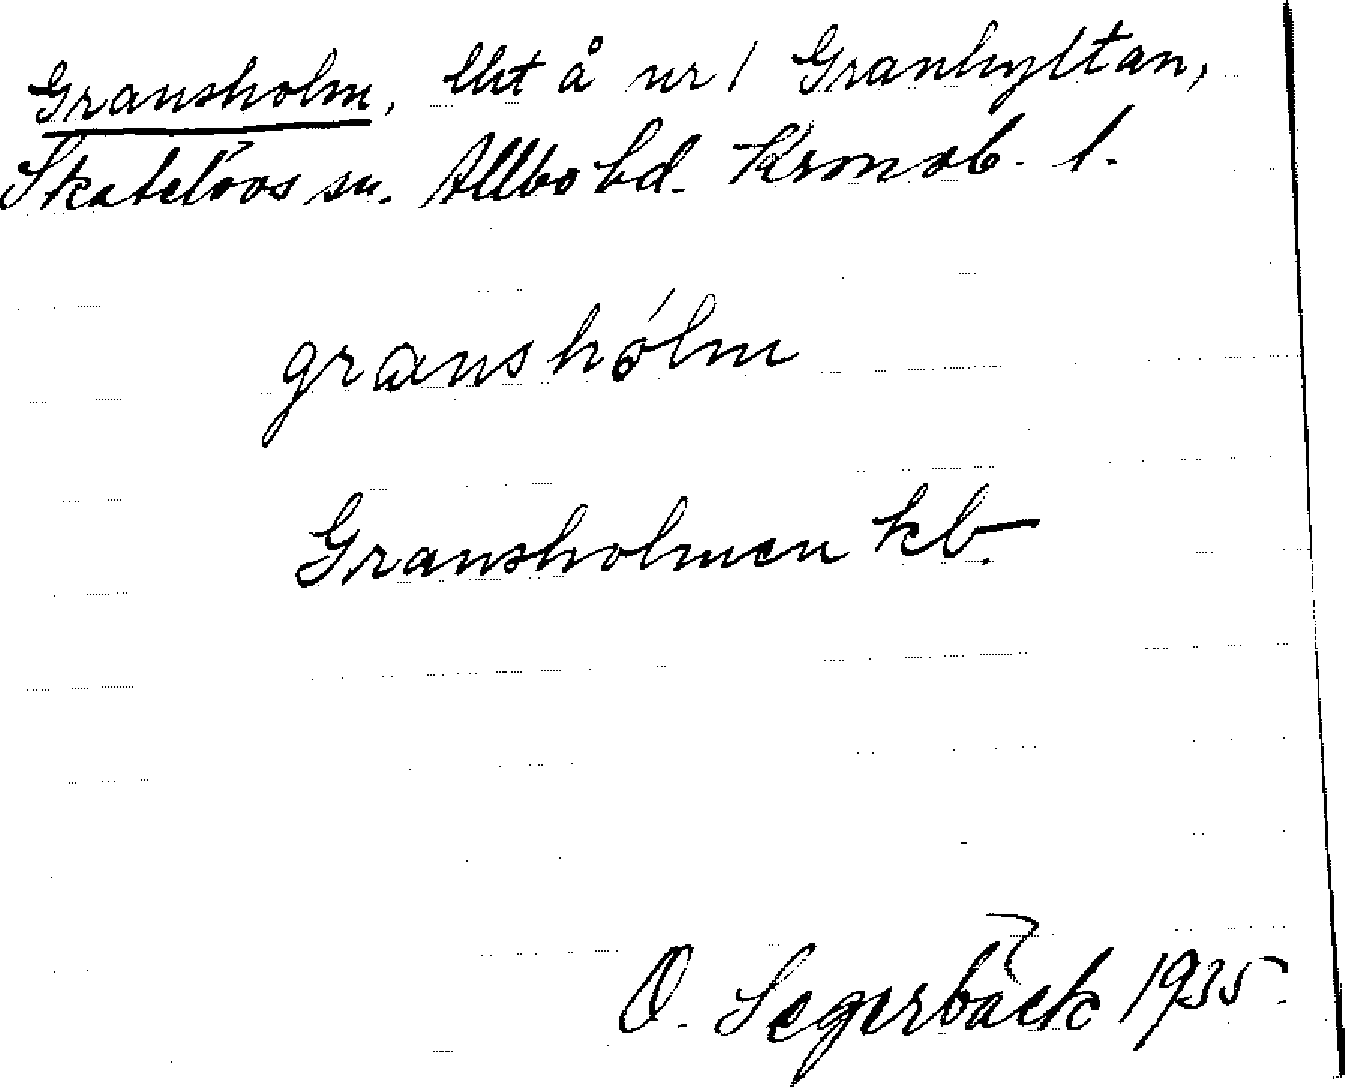 Gransholm, lht å nr 1 Granhyltan,
Skatelövs sn. Allbo hd. Kronob. l.
granshólm
Gransholmen kb.
O. Segerbäck 1935.